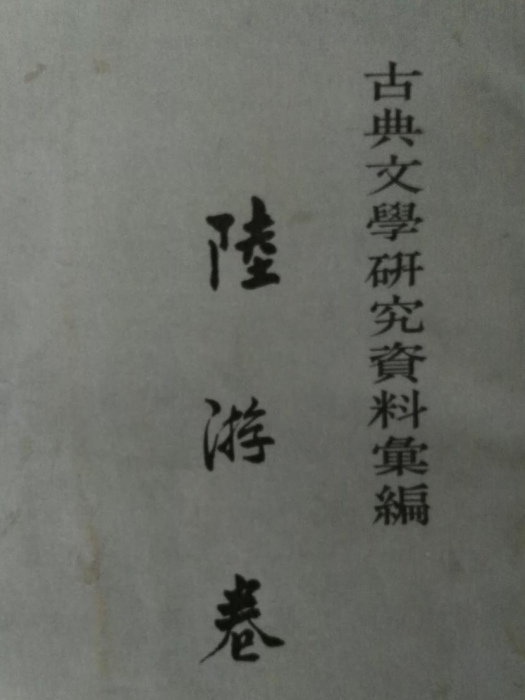 古典文學研究資料彙編
陸游卷